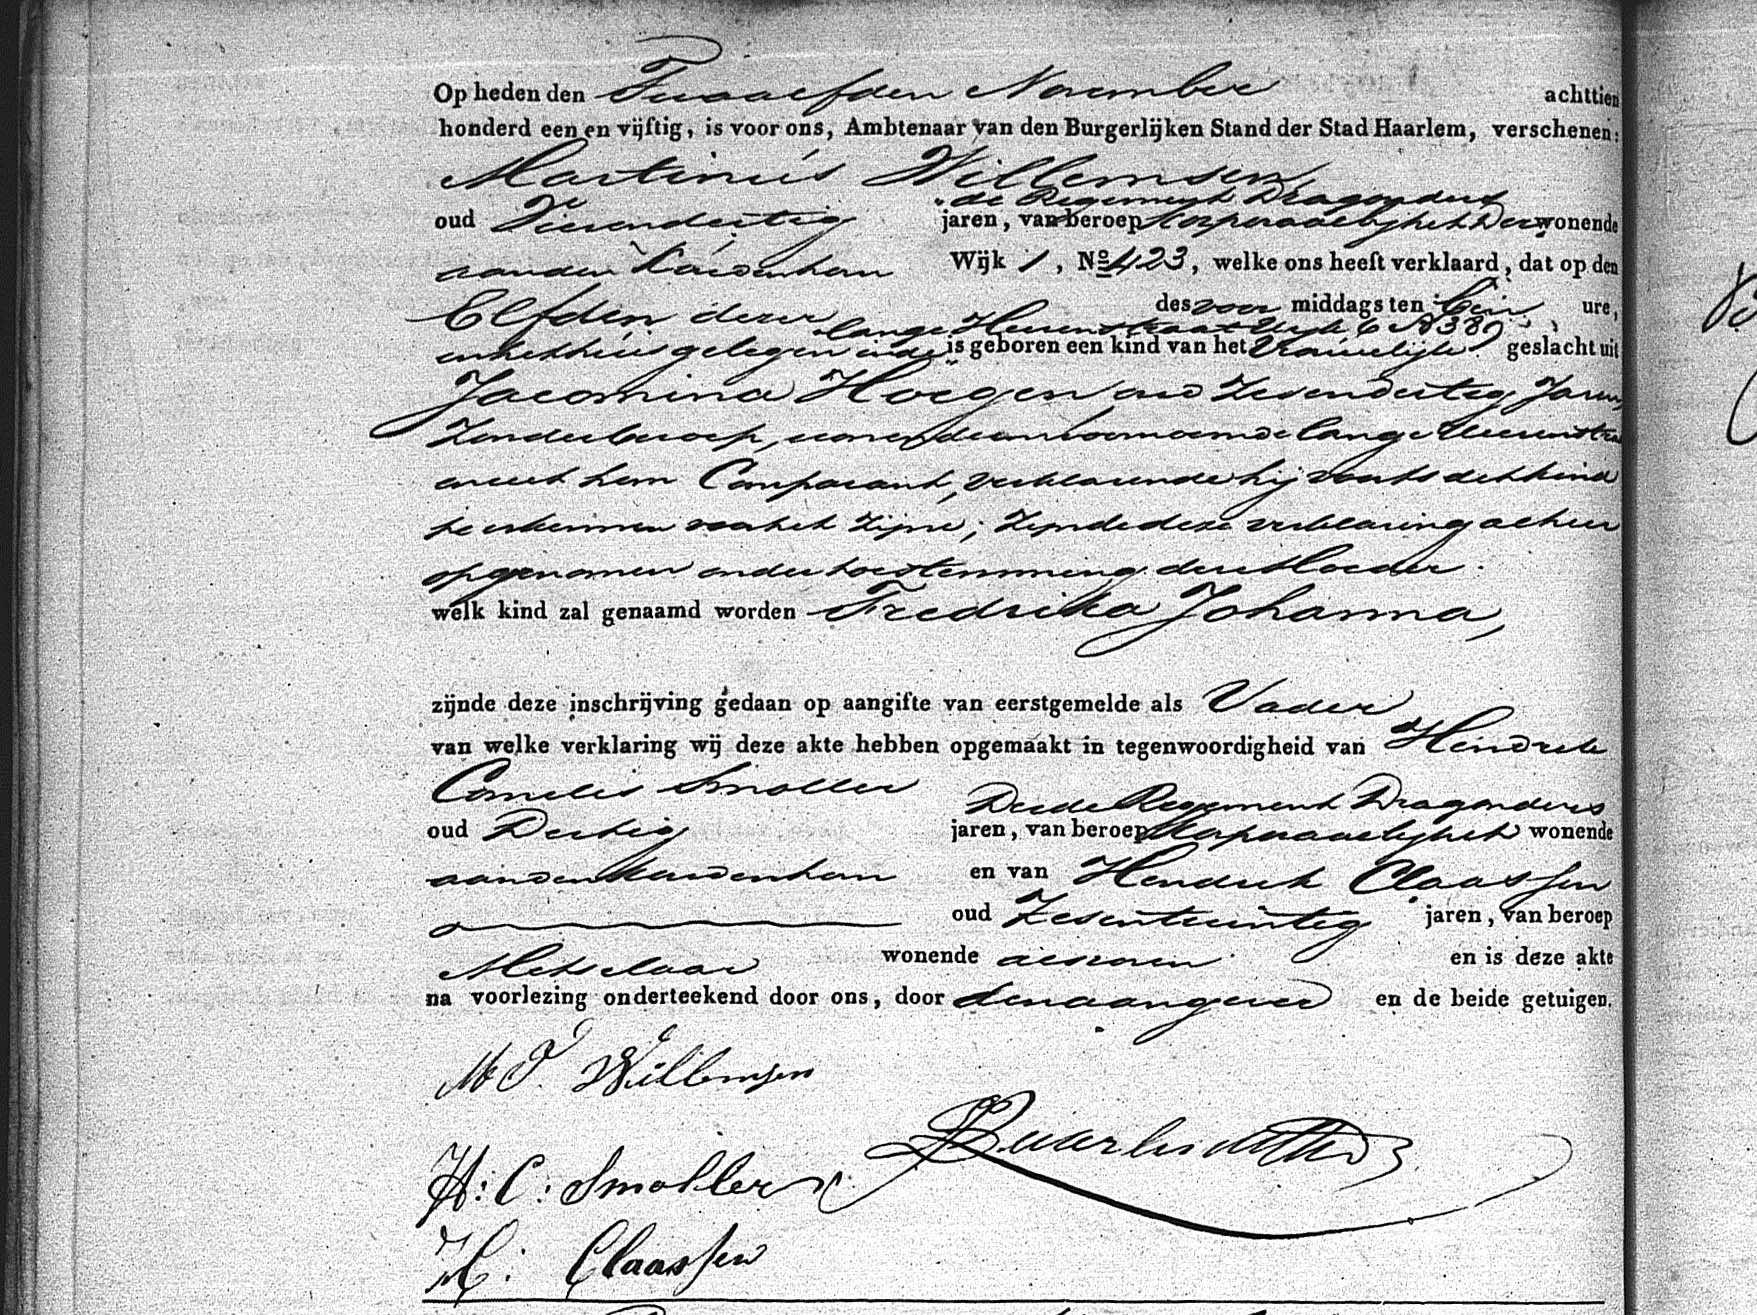 Op heden den Twaalfden November achttien
honderd een en vijftig, is voor ons, Ambtenaar van den Burgerlijken Stand der Stad Haarlem, verschenen:
Martinus Willemsen
de Regement Dragonders
oud Vierendertig jaren, van beroep Korporaal by het Der wonende
aan den Wijk 1, No 423, welke ons heeft verklaard, dat op den
Elfden dezer des voor middags ten een ure,
lange Heerenstraat Wyk 6 N 389
in het huis gelegen in de is geboren een kind van het Vrouwelijke geslacht uit
Jacomina Hoegen oud Zesendertig Jaren,
Zonder beroep, wonende in voornoemde lange Heerenstra
en uit hem Comparant, verklarende hij voorts dit kind
te erkennen voor het zijne; zijnde deze verklaring alhier
opgenomen onder toestemming der Moeder.
welk kind zal genaamd worden Fredrika Johanna,
zijnde deze inschrijving gedaan op aangifte van eerstgemelde als Vader
van welke verklaring wij deze akte hebben opgemaakt in tegenwoordigheid van Hendrik
Cornelis Smoller Derde Regement Dragonders
oud Dertig jaren, van beroep Korporaal by het wonende
aan den en van Hendrik Claassen
oud Zesentwintig jaren, van beroep
Metselaar wonende alsvoren en is deze akte
na voorlezing onderteekend door ons, door den aangever en de beide getuigen.
M J Willemsen
H: C: Smoller
H: Claassen